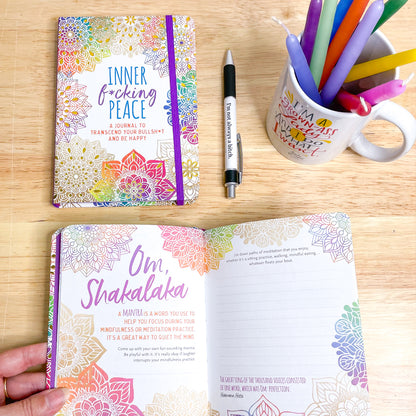 INNER
f*cking
PEACE
A JOURNAL TO
TRANSCEND YOUR BULLSH*T
AND BE HAPPY
I'm not always a bitch.
I'M A
Om,
Shakalaka
A MANTRA IS A WORD YOU USE TO
HELP YOU FOCUS DURING YOUR
MINDFULNESS OR MEDITATION PRACTICE.
IT'S A GREAT WAY TO QUIET THE MIND.
Come up with your own fun-sounding mantra.
Be playful with it. It's really okay if laughter
interrupts your mindfulness practice.
List different paths of meditation that you enjoy,
whether it's sitting practice, walking, mindful eating,
whatever floats your boat.
THE GREAT SONG OF THE THOUSAND VOICES CONSISTED
OF ONE WORD, WHICH WAS OM: PERFECTION.
Hermann Hesse